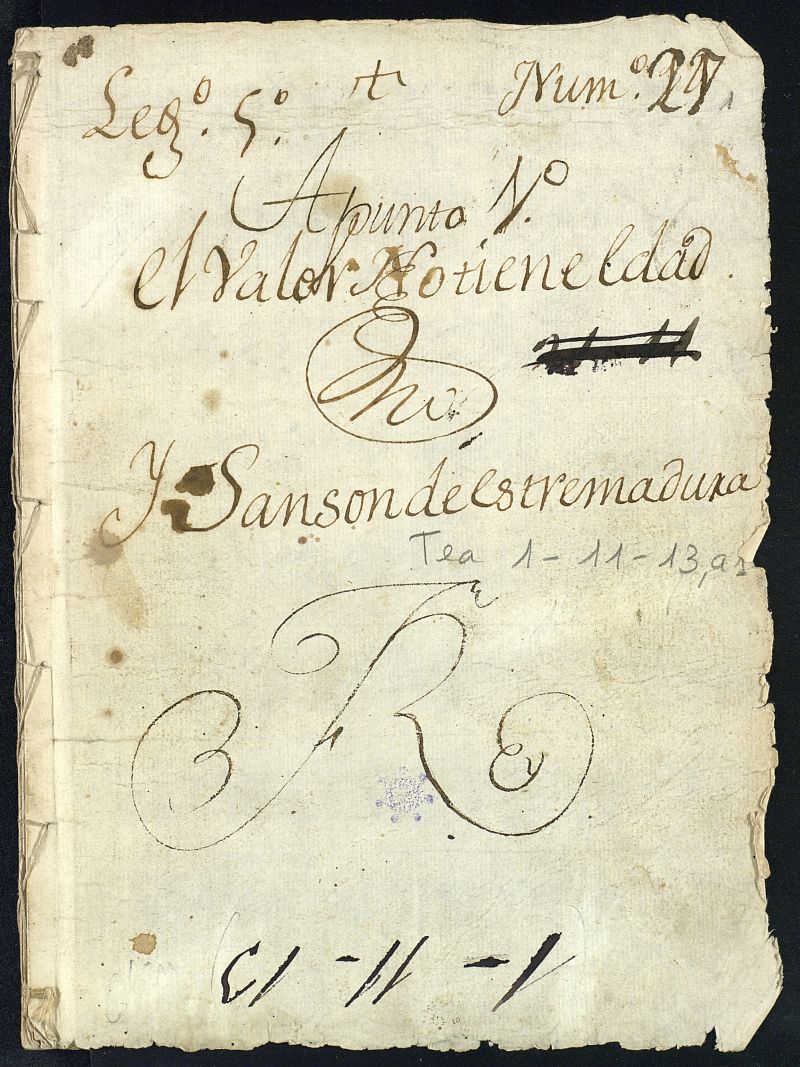 Leg.º 5.º + Num.º 27
Apunto 1.º
el Valor No tiene edad
Y Sanson de estremadura
Tea 1-11-13, a1
1 - 11 - 13